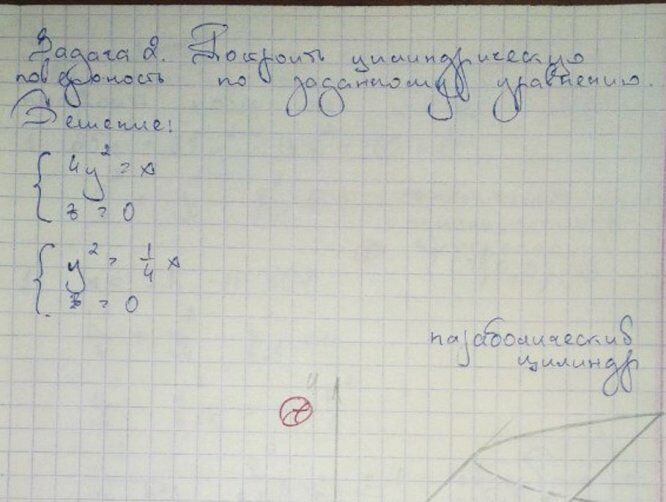 Задача 2. Построить цилиндрическую
поверхность по заданному уравнению.
Решение:
4y² = x
z = 0
y² = 1/4 x
z = 0
параболический
цилиндр